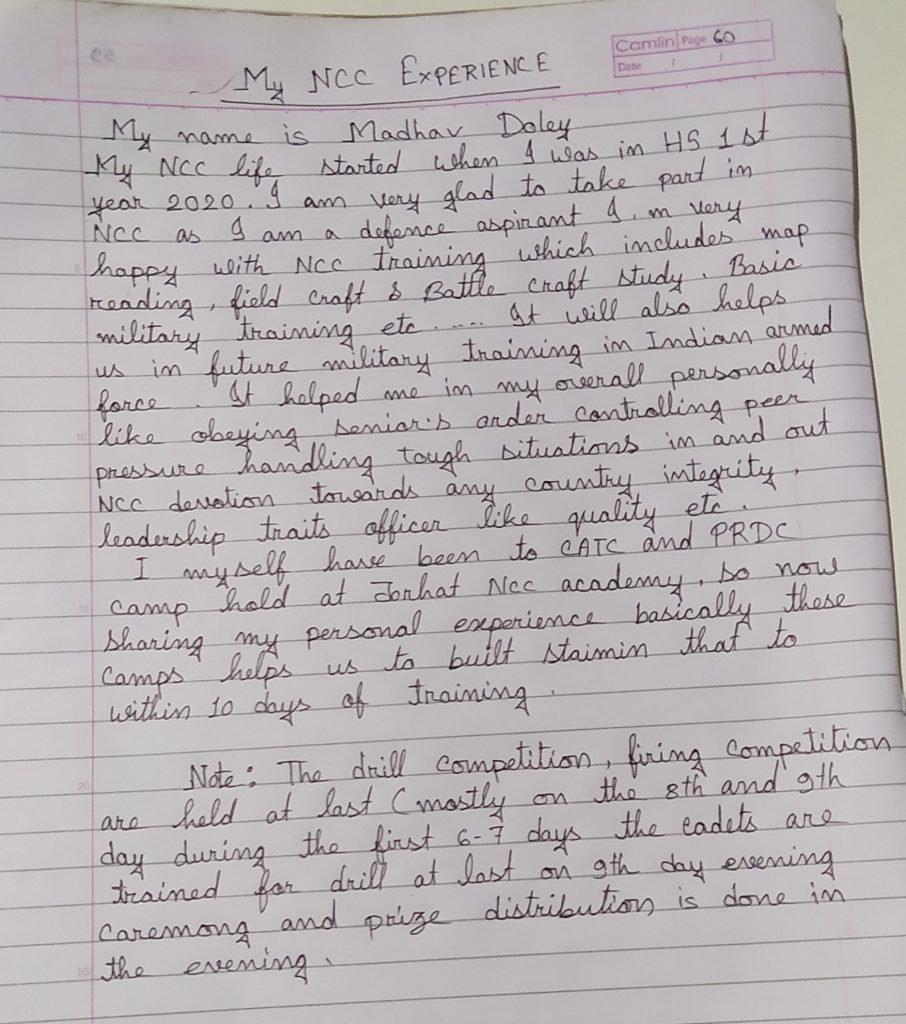 Camlin Page 60
Date / /
My NCC EXPERIENCE
My name is Madhav Doley
My NCC life started when I was in HS 1st
year 2020. I am very glad to take part in
NCC as I am a defence aspirant I, m very
happy with NCC training which includes map
reading, field craft & Battle craft study. Basic
military training etc..... It will also helps
us in future military training in Indian armed
force. It helped me in my overall personally
like obeying senior's order controlling peer
pressure handling tough situations in and out
NCC devotion towards any country integrity,
leadership traits officer like quality etc.
I myself have been to CATC and PRDC
camp hold at Jorhat NCC academy, so now
sharing my personal experience basically these
camps helps us to built staimin that to
within 10 days of training.
Note: The drill competition, firing competition
are held at last (mostly on the 8th and 9th
day during the first 6-7 days the cadets are
trained for drill at last on 9th day evening
caremong and prize distribution is done in
the evening.